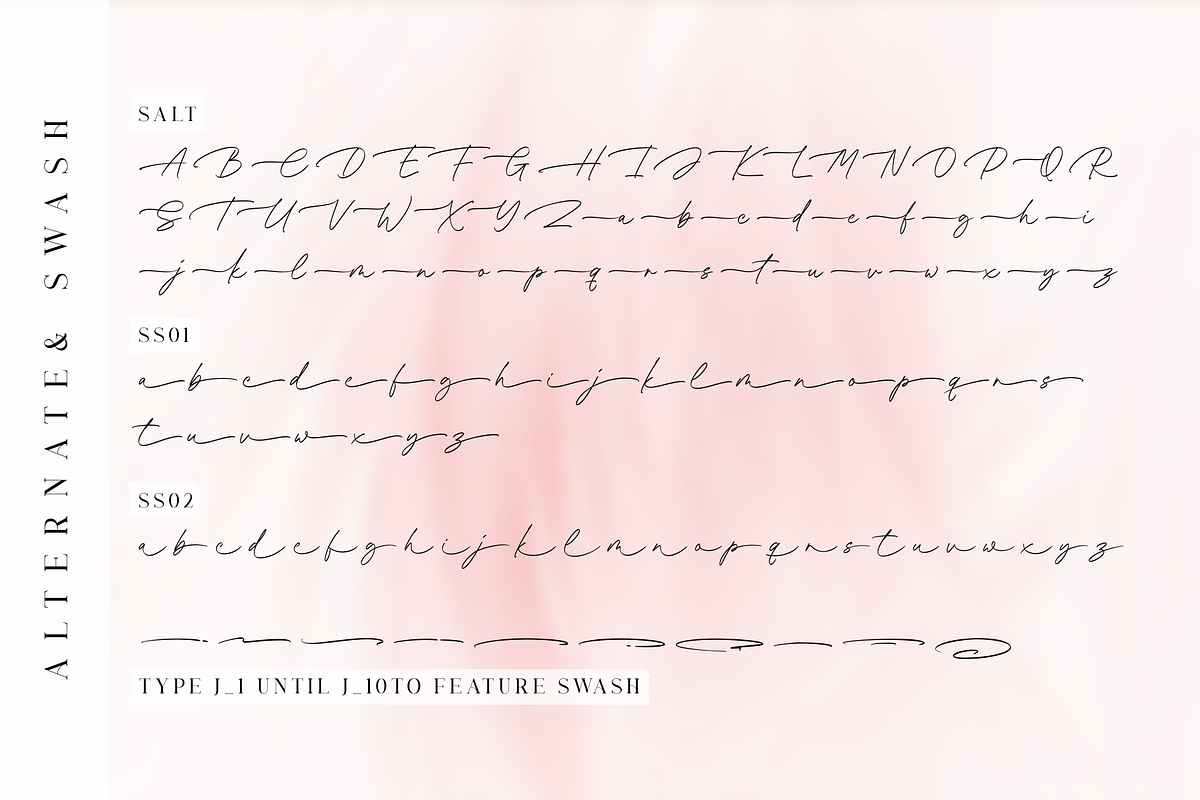 ALTERNATE & SWASH
SALT
A B C D E F G H I J K L M N O P Q R
S T U V W X Y Z a b c d e f g h i
j k l m n o p q r s t u v w x y z
SS01
a b c d e f g h i j k l m n o p q r s
t u v w x y z
SS02
a b c d e f g h i j k l m n o p q r s t u v w x y z
TYPE J_1 UNTIL J_10TO FEATURE SWASH